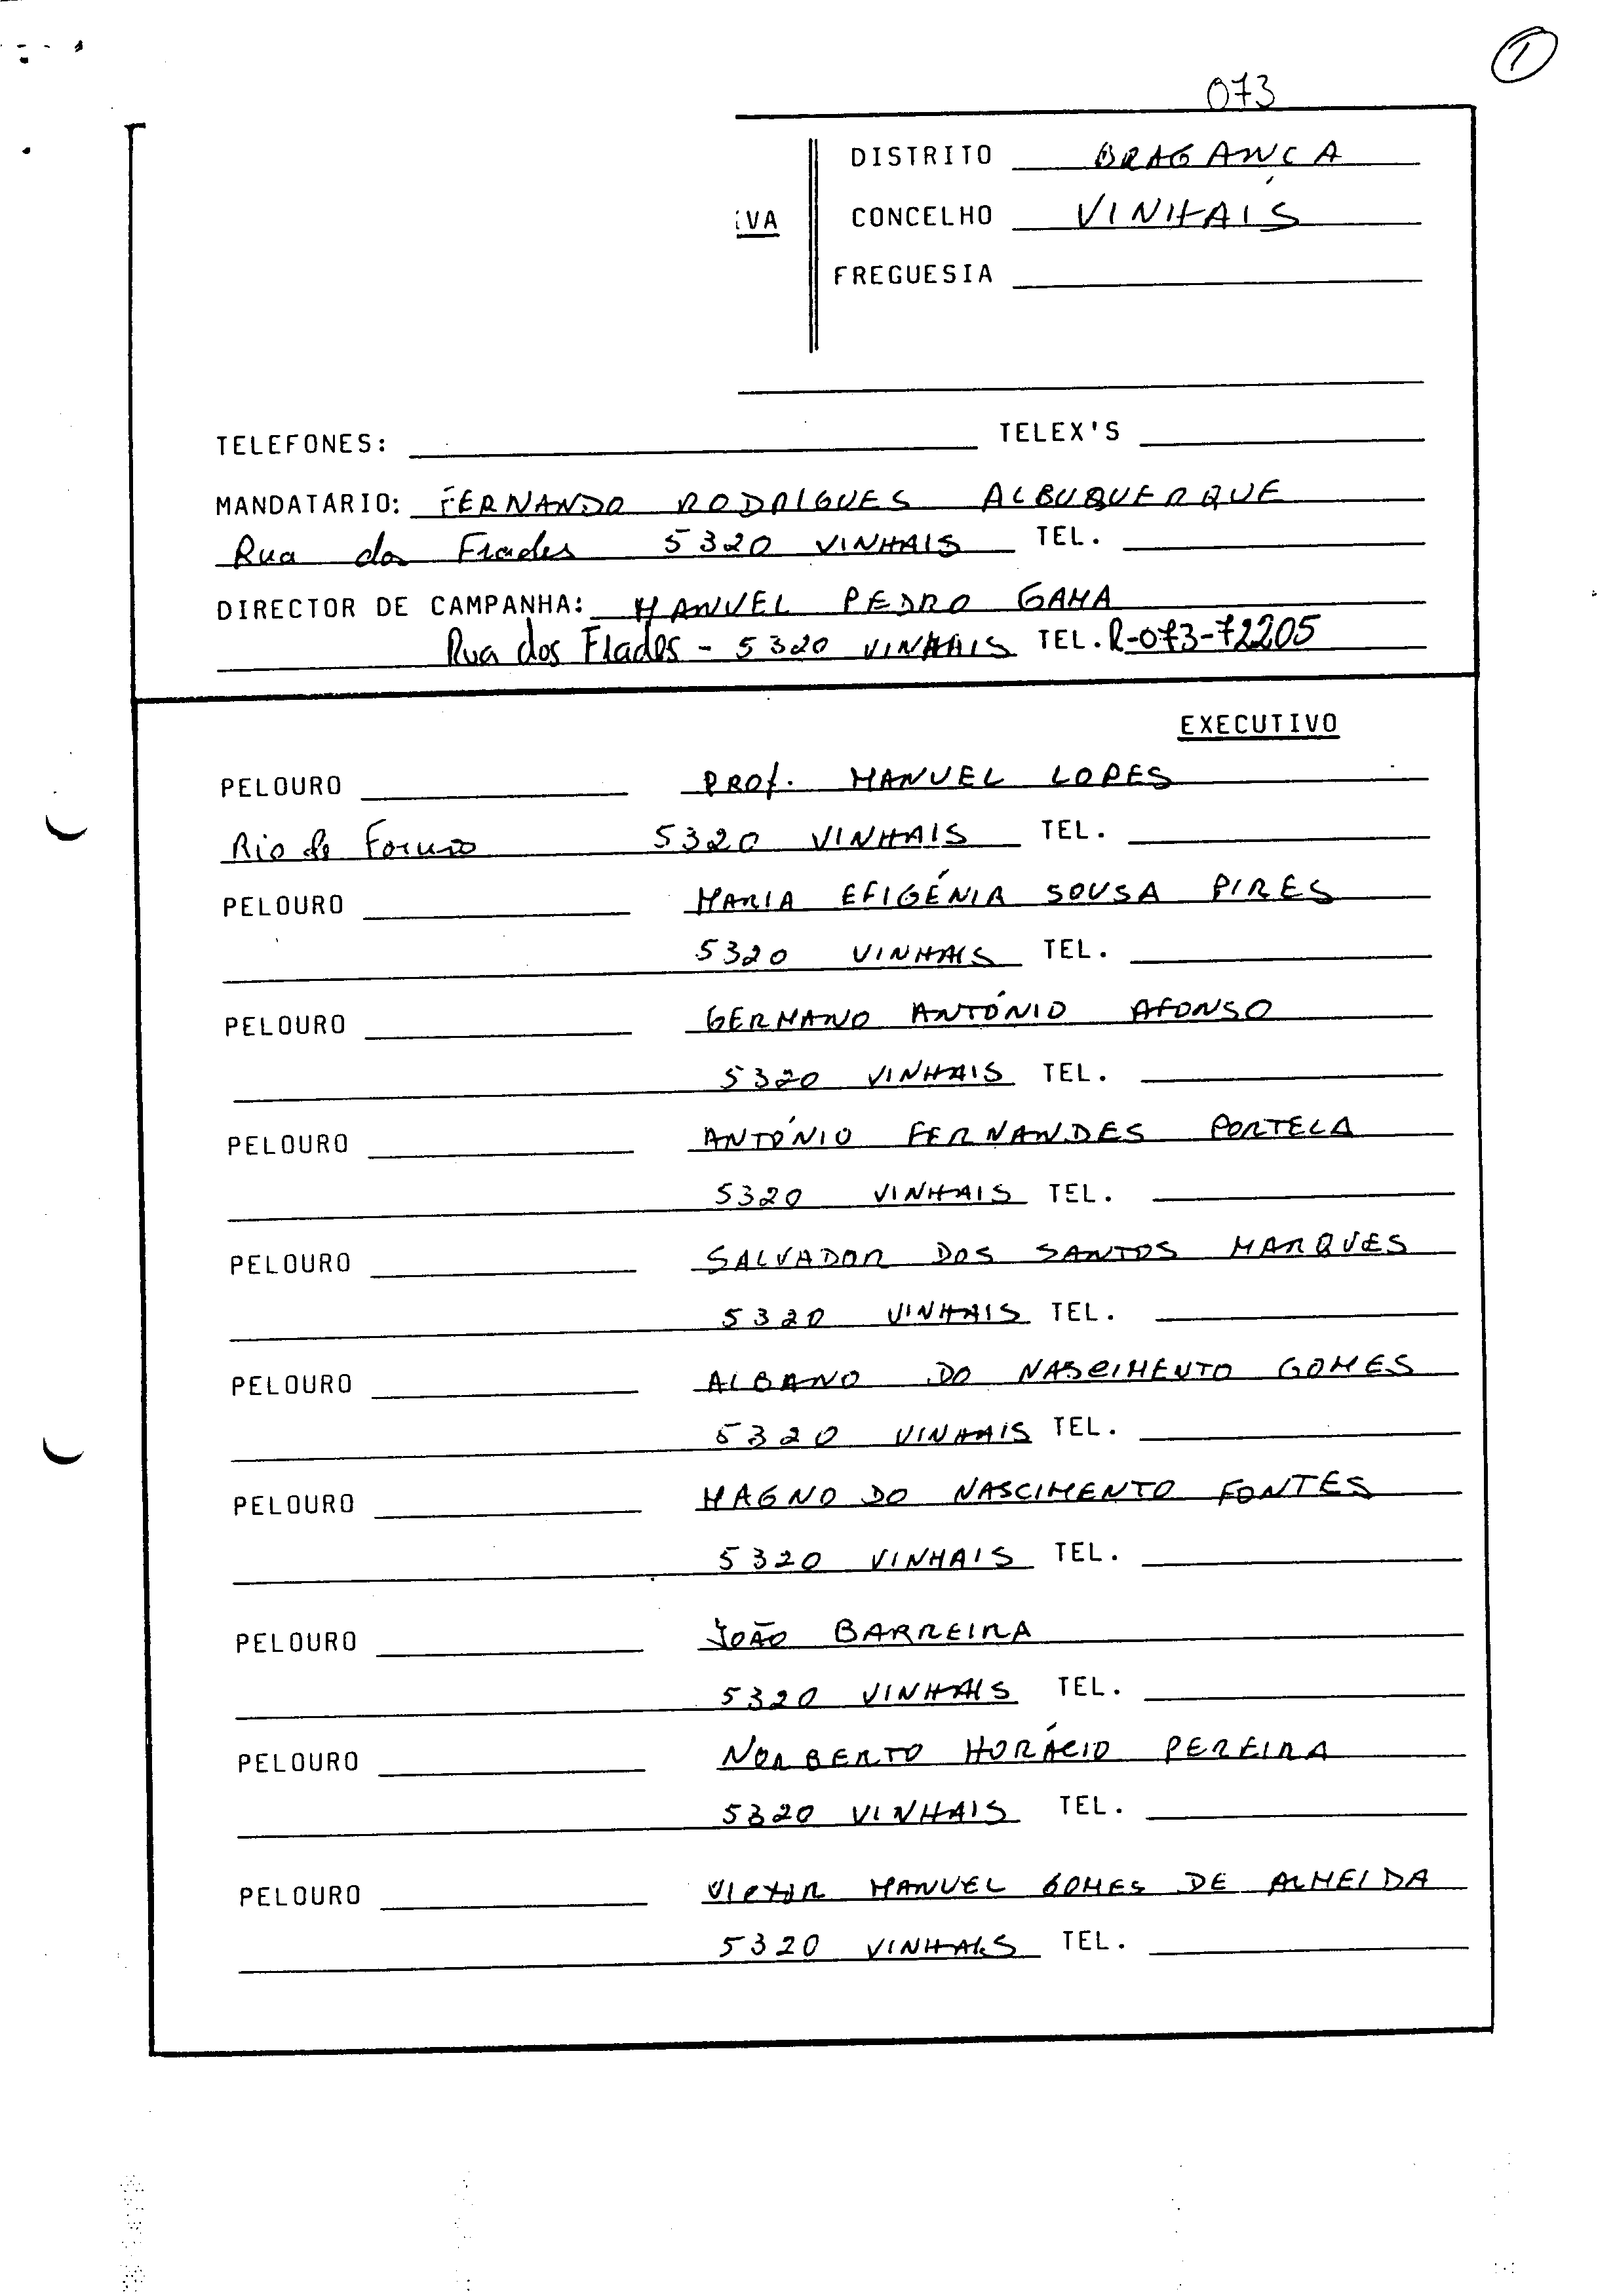 1
073
DISTRITO BRAGANÇA
IVA CONCELHO VINHAIS
FREGUESIA
TELEFONES: TELEX'S
MANDATARIO: FERNANDO RODRIGUES ALBUQUERQUE
Rua dos Frades 5320 VINHAIS TEL.
DIRECTOR DE CAMPANHA: MANUEL PEDRO GAMA
Rua dos Frades - 5320 VINHAIS TEL. R-073-72205
EXECUTIVO
PELOURO PROf. MANUEL LOPES
Rio de 5320 VINHAIS TEL.
PELOURO MARIA EFIGÉNIA SOUSA PIRES
5320 VINHAIS TEL.
PELOURO GERMANO ANTÓNIO AFONSO
5320 VINHAIS TEL.
PELOURO ANTÓNIO FERNANDES PORTELA
5320 VINHAIS TEL.
PELOURO SALVADOR DOS SANTOS MARQUES
5320 VINHAIS TEL.
PELOURO ALBANO DO NASCIMENTO GOMES
5320 VINHAIS TEL.
PELOURO MAGNO DO NASCIMENTO FONTES
5320 VINHAIS TEL.
PELOURO JOÃO BARREIRA
5320 VINHAIS TEL.
PELOURO NORBERTO HORÁCIO PEREIRA
5320 VINHAIS TEL.
PELOURO VICTOR MANUEL GOMES DE ALMEIDA
5320 VINHAIS TEL.